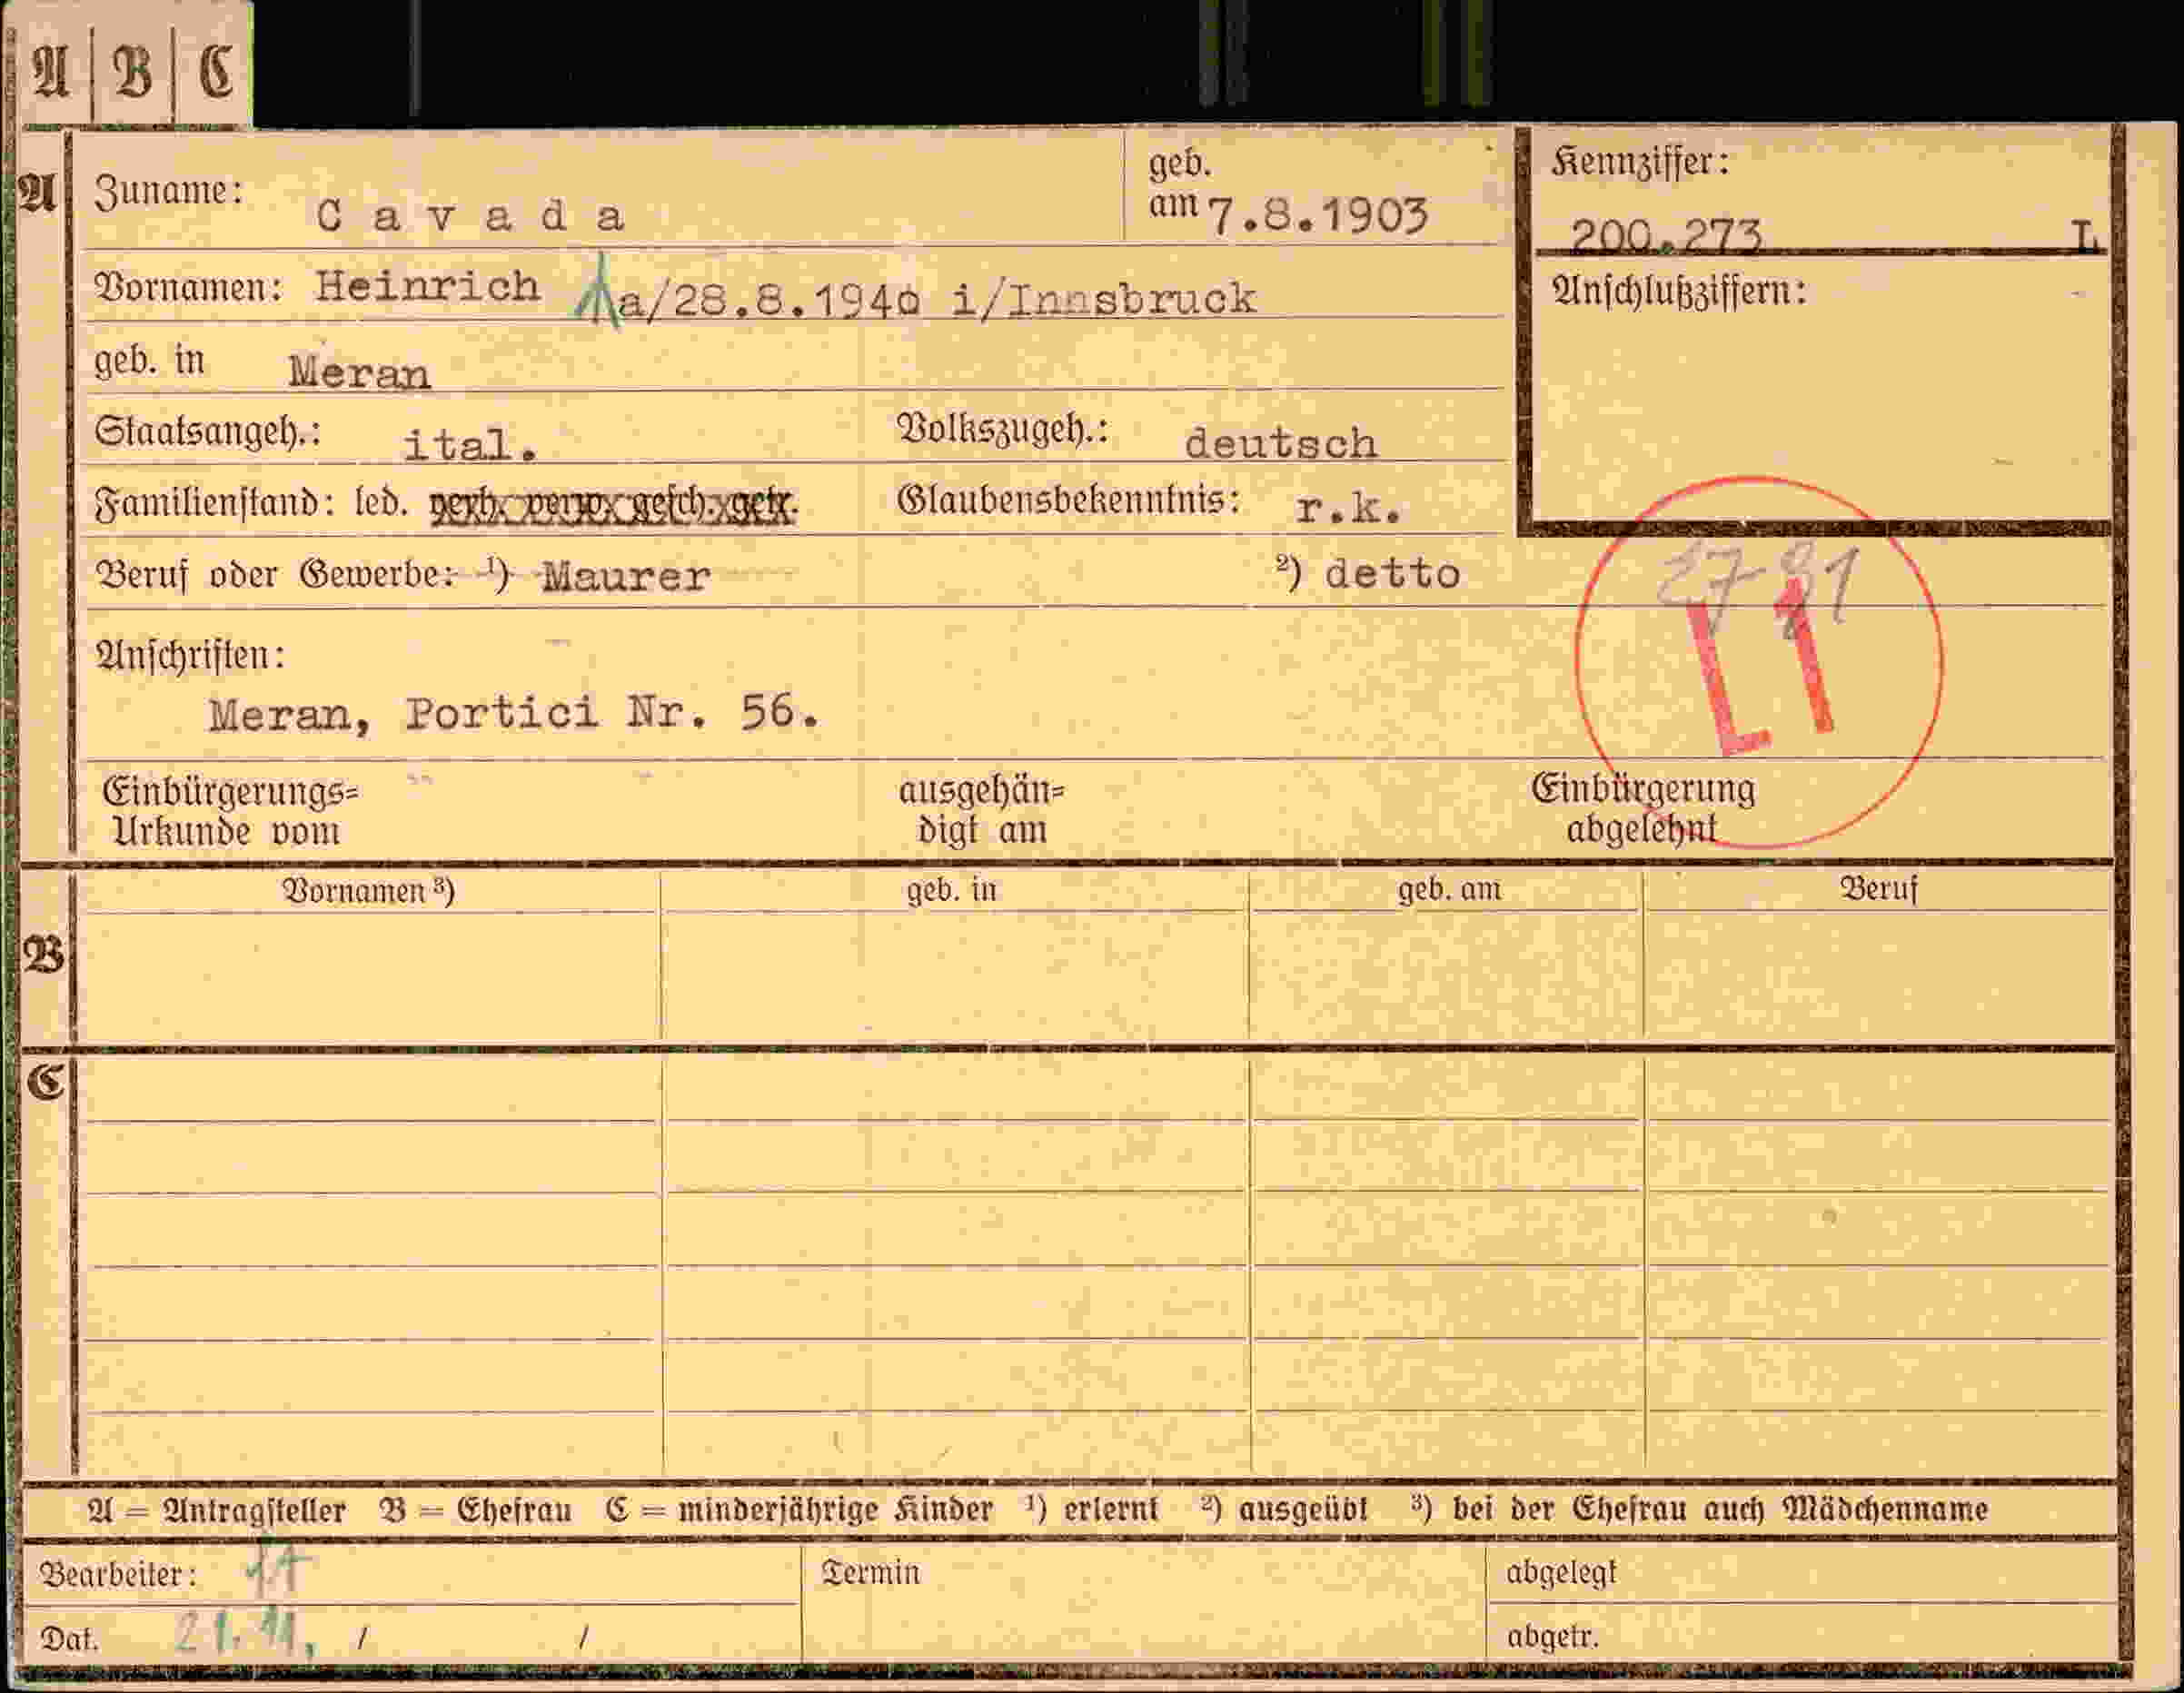 A B C
A Zuname: Cavada geb. am 7.8.1903 Kennziffer:
200.273 L
Vornamen: Heinrich a/28.8.1940 i/Innsbruck Anschlußziffern:
geb. in Meran
Staatsangeh.: ital. Volkszugeh.: deutsch
Familienstand: led. verh. verw. gesch. getr. Glaubensbekenntnis: r.k.
Beruf oder Gewerbe: ¹) Maurer ²) detto
L 1
Anschriften:
Meran, Portici Nr. 56.
Einbürgerungs= ausgehän= Einbürgerung
Urkunde vom digt am abgelehnt
B Vornamen ³) geb. in geb. am Beruf
C
A = Antragsteller B = Ehefrau C = minderjährige Kinder ¹) erlernt ²) ausgeübt ³) bei der Ehefrau auch Mädchenname
Bearbeiter: Termin abgelegt
Dat. 21.11. / / abgetr.